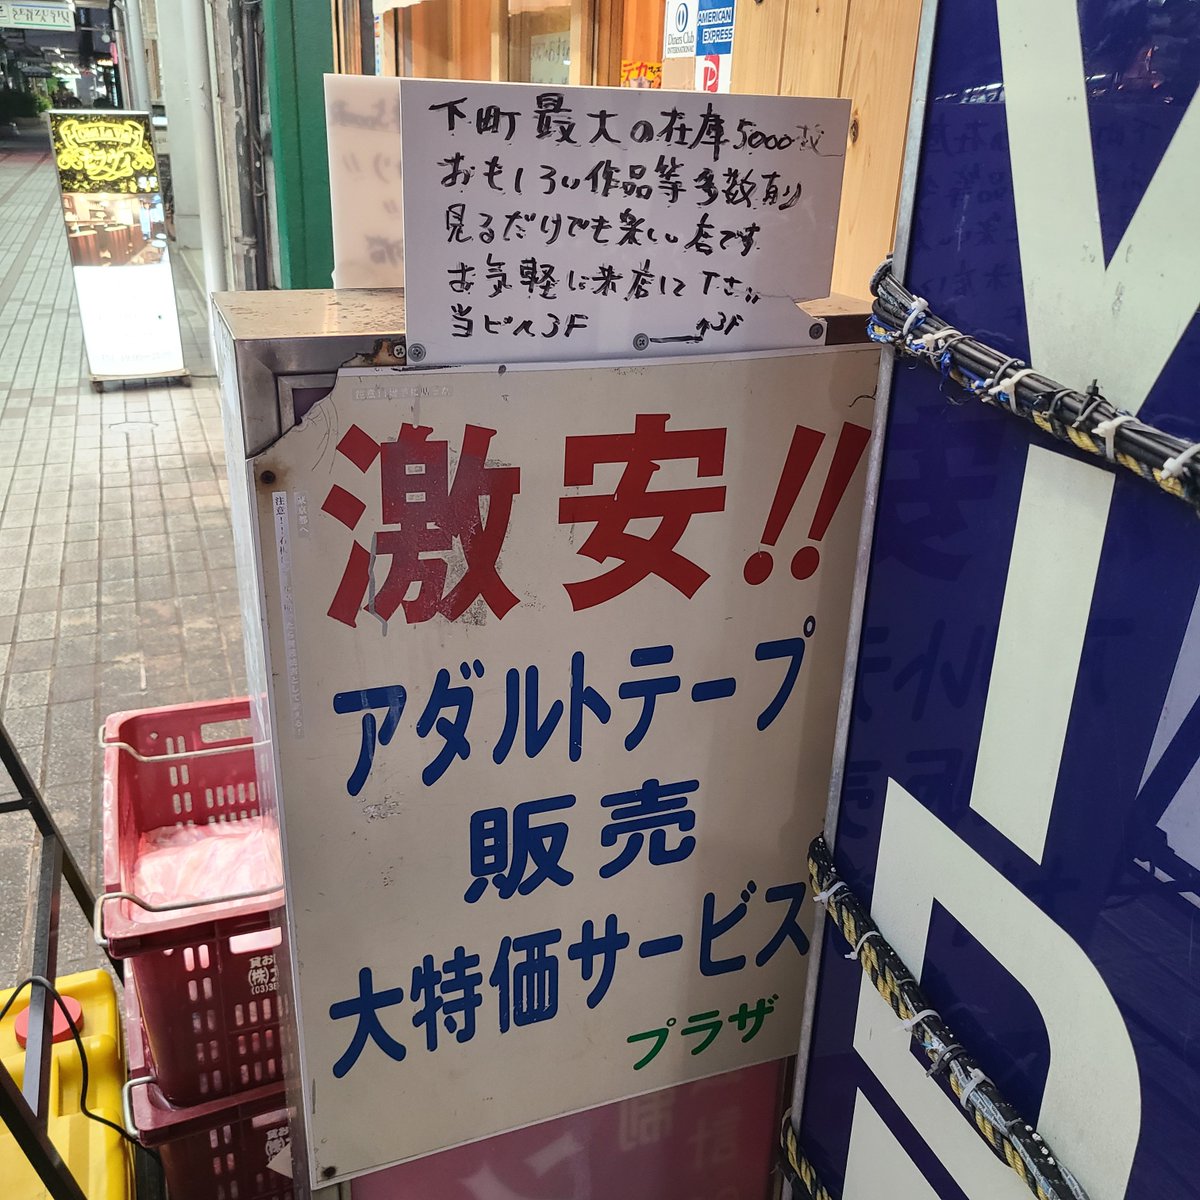 下町最大の在庫5000枚
おもしろい作品等多数有り
見るだけでも楽しい店です
お気軽に来店して下さい
当ビル3F
↑3F
激安!!
アダルトテープ
販売
大特価サービス
プラザ
Diners Club
INTERNATIONAL
AMERICAN
EXPRESS
デカ
東京都へ
注意!!
(株)
(03)38